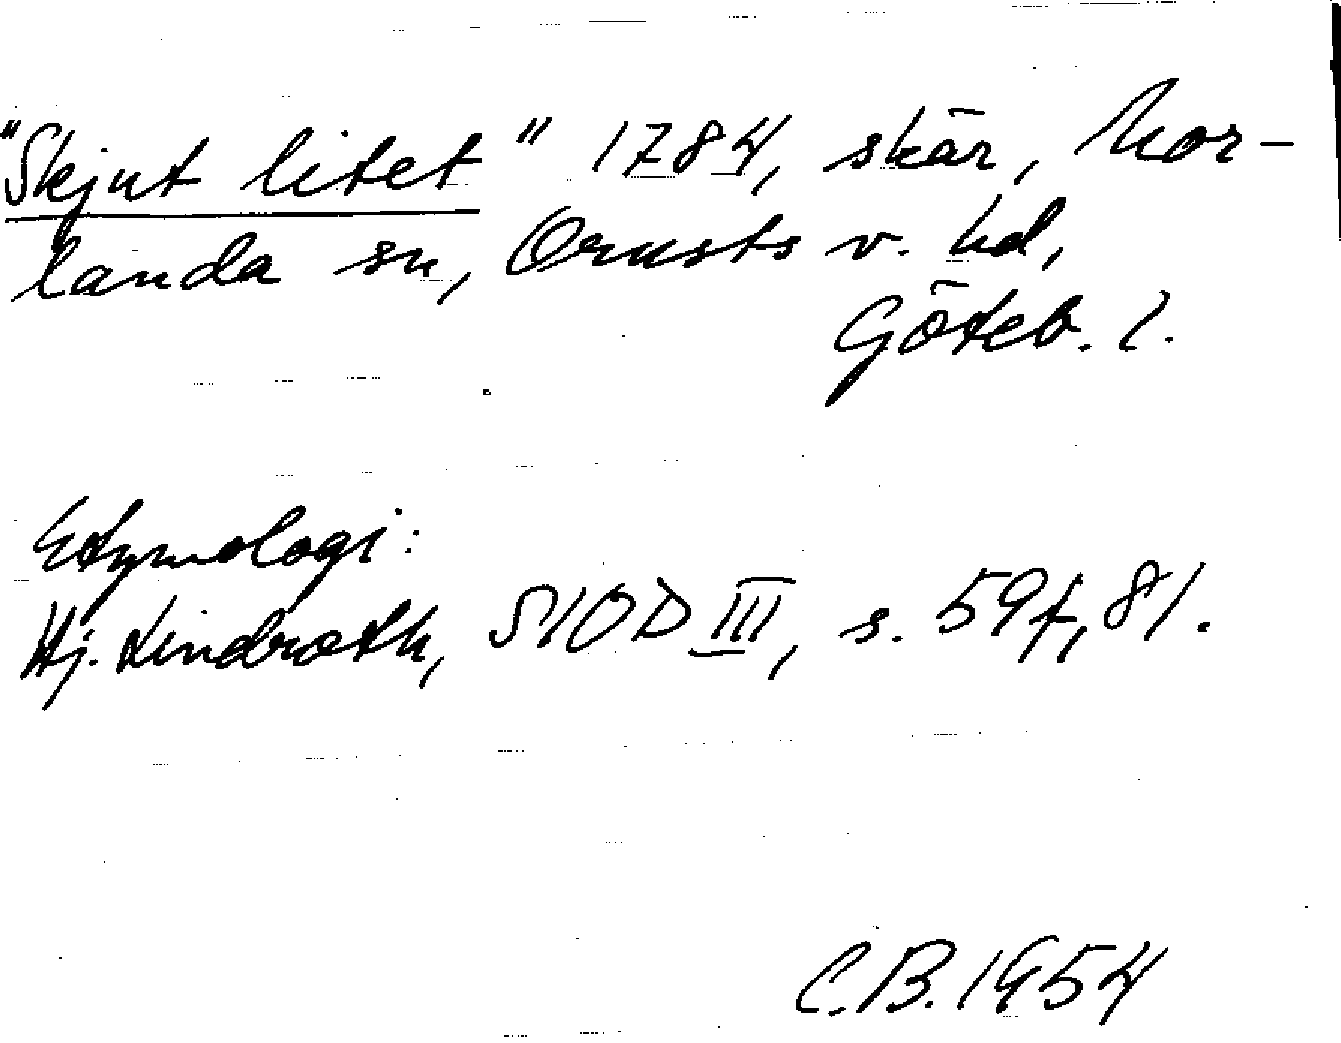 "Skjut litet" 1784, skär, Mor-
landa sn, Orusts v. hd,
Göteb. l.
Etymologi:
Hj. Lindroth, SIOD III, s. 59f, 81.
C.B. 1954